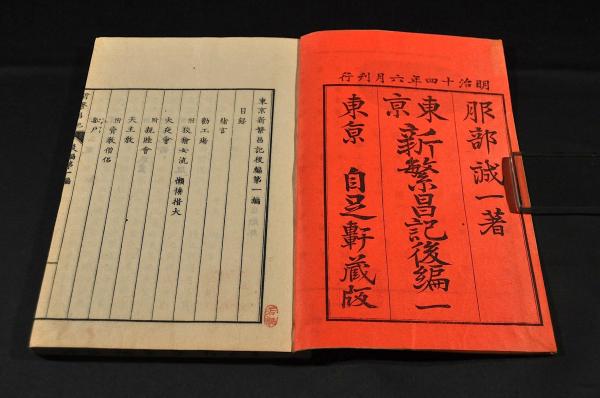 明治十四年六月刋行
服部誠一著
東京新繁昌記後編一
東京 自足軒蔵版
東京新繁昌記後編第一編
目録
緒言
勧工塲
附 狡獪女流 懶惰措大
火夜會
附 親睦會
天主教
附 賣教僧侶